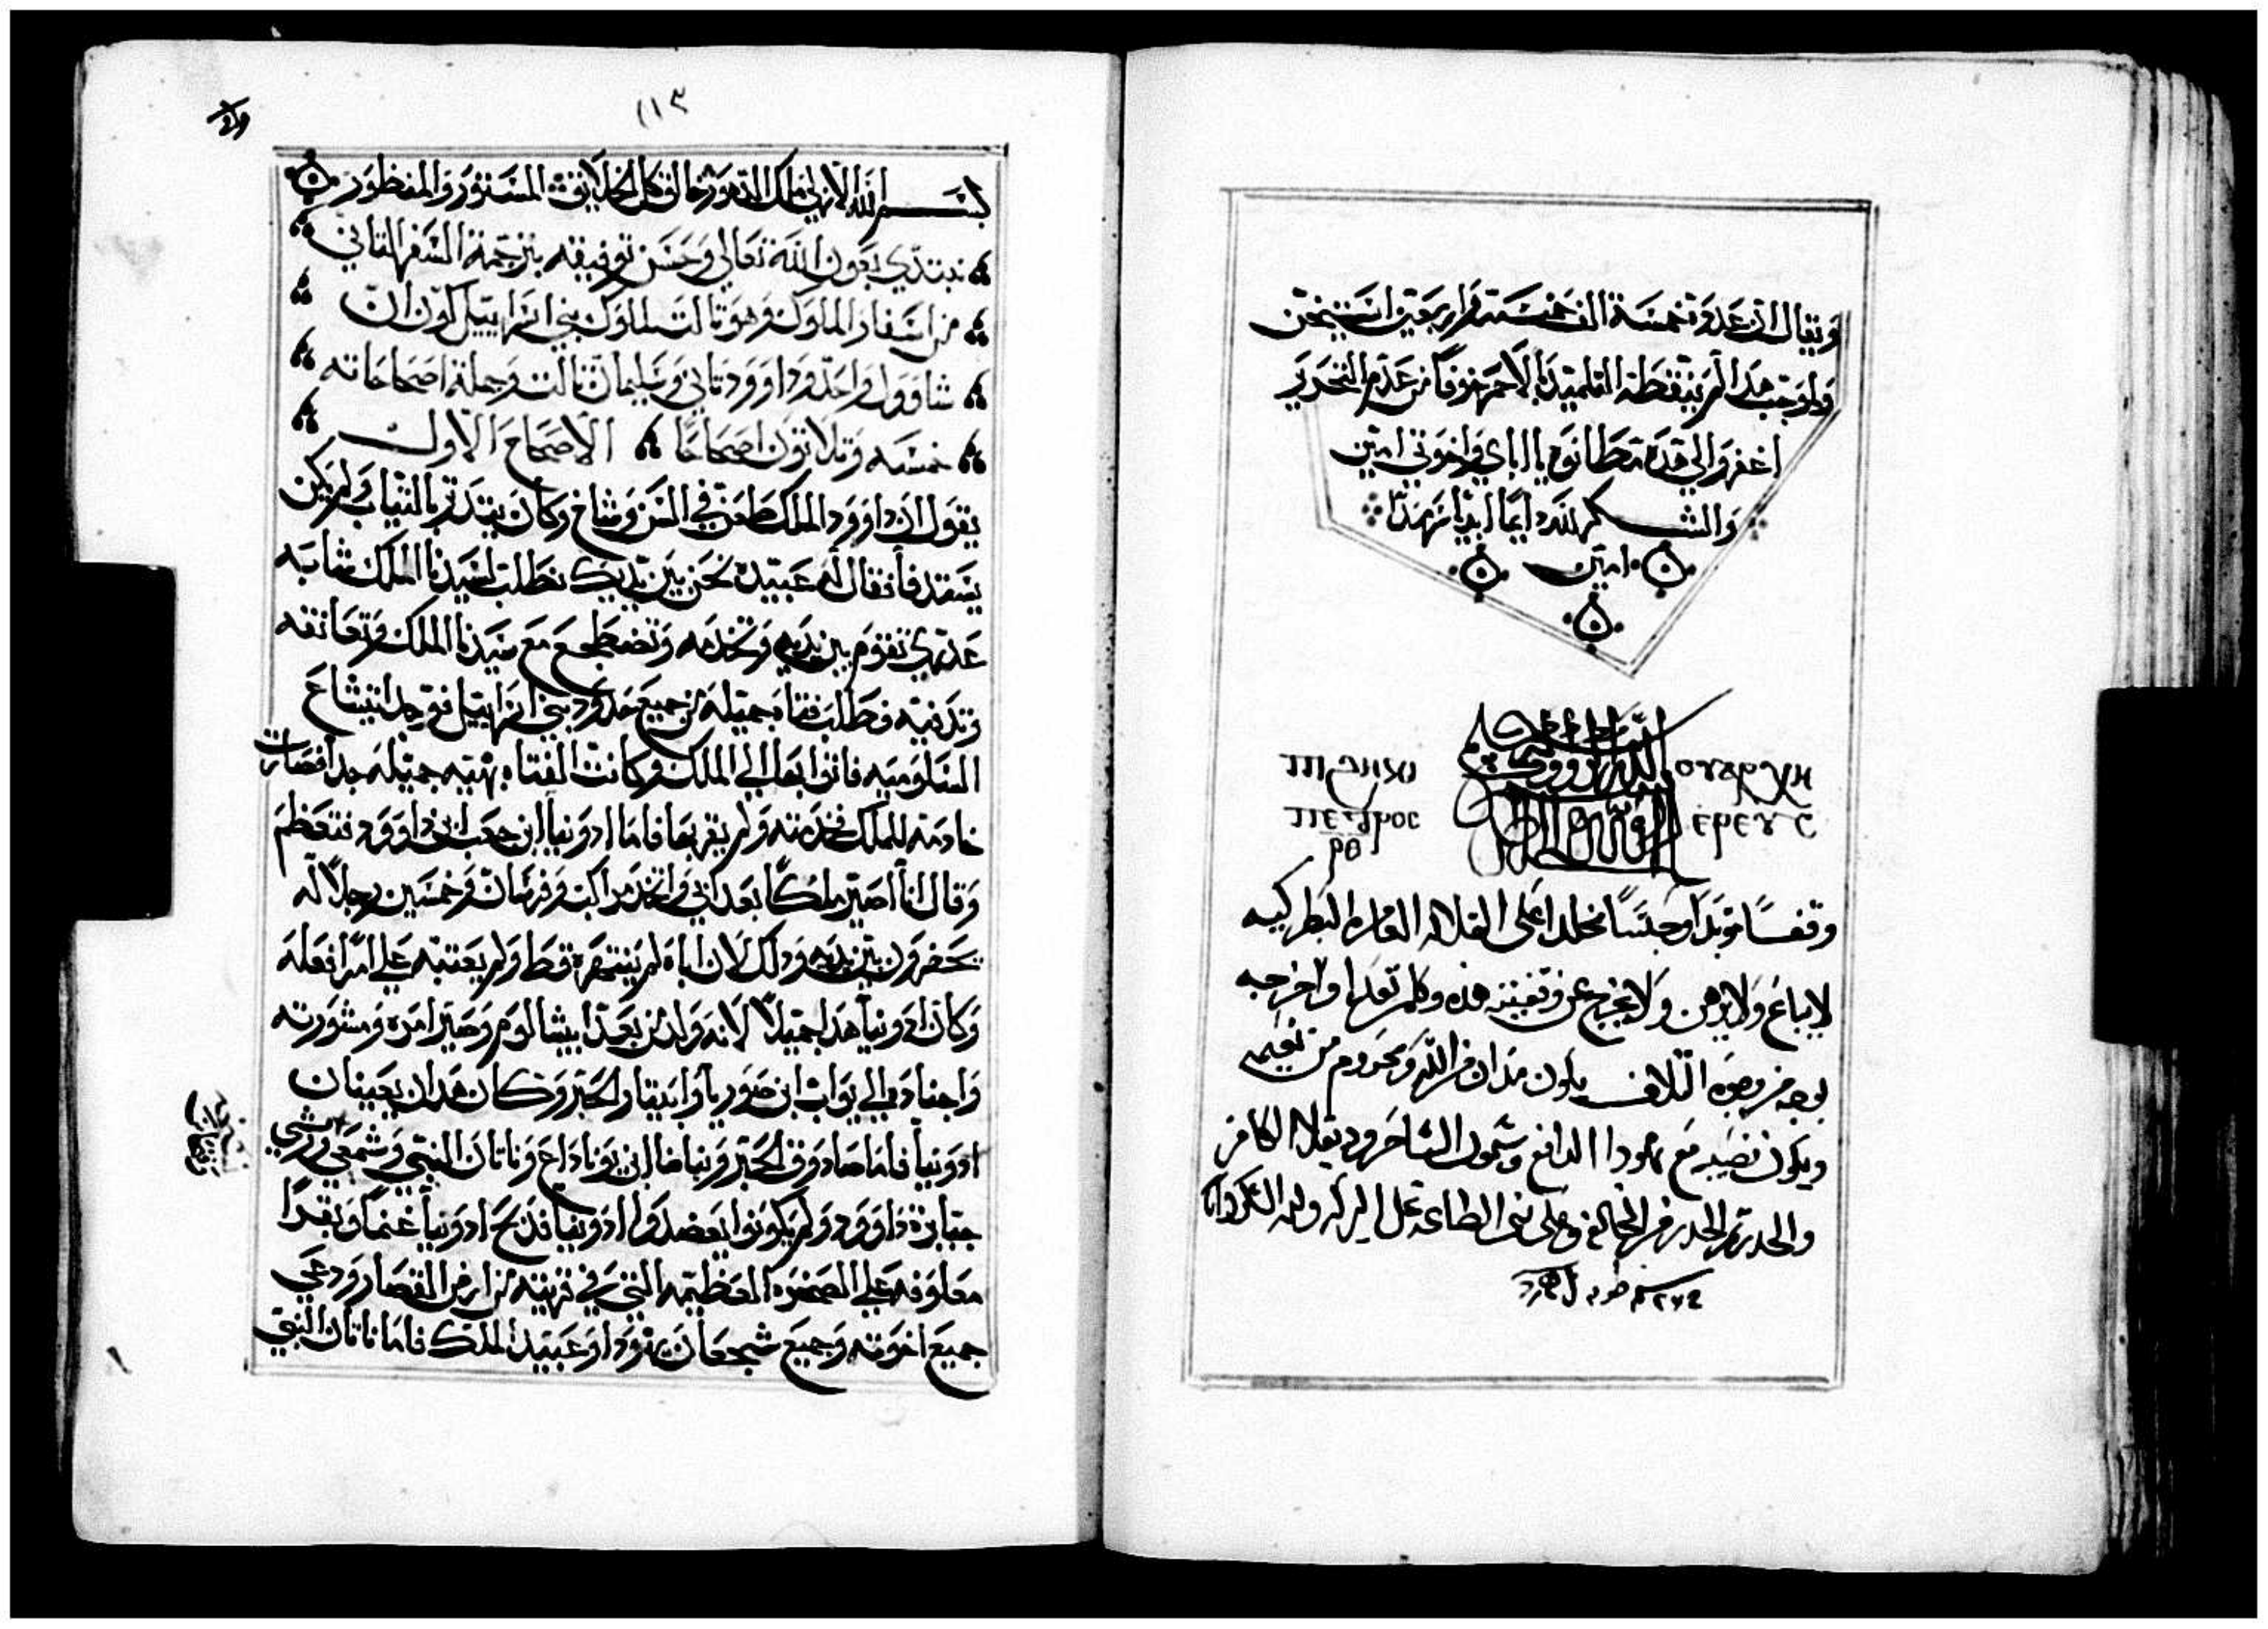 ويقال ان عدوة خمسة الف خمسمة واربعين استيخن
ولوجب هدا لم ينقطه التلميد بالاحمر خوفاً من عدم التحرير
اغفروا لي قدة مطانوة يا اباي واخوتي امين
والشكر لله دايما ابدياً سرمداً
امين
ⲟⲩⲁⲣⲭⲏ
ⲉⲣⲉⲩⲥ
ⲡⲉⲧⲣⲟⲥ
ⲣⲑ
وقفـــاً موبداً وحبساً مخلداً على القلايه العامره البطركيه
لا يباع ولا يرهن ولا يخرج عن وقفيته هذه وكلمن تعدا واخرجه
بوجه من وجوه التلاف يكون مدان من الله ومحروم من نعيمه
ويكون نصيبه مع يهودا الدافع وسيمون الساحر وديقلاديا الكافر
والحدر ثم الحدر من المخالفه وعلى بني الطاعه تحل البركه ولله الشكر دايما
١١٣
بســـم الله الازلي مالك الدهور خالق كل الخلايق المستور والمنظور
نبتدي بعون الله تعالي وحسن توفيقه بترجمة السفر التاني
من اسفار الملوك وهو تالت لملوك بني اسراييل لكون ان
شاوول واحد وداوود تاني وسليمان تالت وجملة اصحاحاته
خمسه وتلاتون اصحاحاً الاصحاح الاول
يقول ان داوود الملك طعن في السن وشاخ وكان يتدتر بالتياب ولم يكن
يستدفأ فقال له عبيده نحن بين يديك نطلب لسيدنا الملك شابه
عدري تقوم بين يديه وتخدمه وتضطجع مع سيدنا الملك وتعانقه
وتدفيه فطلب فتاه جميله من جميع حدود بني اسراييل فوجد ابيشاع
السلوميه فاتوا بها الي الملك وكانت الفتاه بهيه جميله جداً فصارت
خادمة للملك تخدمته ولم يقربها فاما ادونيا ابن حجيب ابن داوود فتعظم
وقال انا اصير ملكاً بعد ابي واتخد مراكب وفرسان وخمسين رجلاً له
يحضرون بين يديه ودلك لان اباه لم ينتهره قط ولم يعتبه علي امراً فعله
وكان ادونيا هدا جميلاً لانه ولد من بعد ابيشالوم وصير امره ومشورته
واجنادي الي يواب ابن صوريا وابيتار الحبر وكان هدان يعينان
ادونيا فاما صادوق الحبر وبنايا ابن يوناداع وناتان النبي وشمعي ورشي
جبابرة داوود ولم يكونوا يعضدوا ادونيا فدبح ادونيا غنماً وبقراً
معلوفه علي الصخره العظيمه التي في قرية من ارض القصار ودعي
جميع اخوته وجميع شجعان يهودا وعبيد الملك فاما ناتان النبي